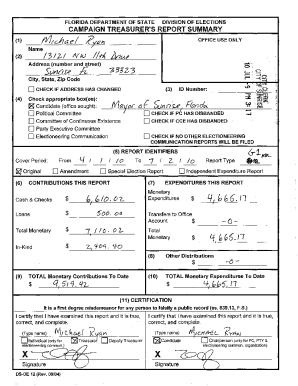 FLORIDA DEPARTMENT OF STATE DIVISION OF ELECTIONS
CAMPAIGN TREASURER'S REPORT SUMMARY
(1) Michael Ryan
Name
OFFICE USE ONLY
(2) 13121 NW 11th Drive
Address (number and street)
Sunrise FL 33323
City, State, Zip Code
CHECK IF ADDRESS HAS CHANGED
(3) ID Number:
(4) Check appropriate box(es):
Candidate (office sought): Mayor of Sunrise, Florida
Political Committee
CHECK IF PC HAS DISBANDED
Committee of Continuous Existence
CHECK IF CCE HAS DISBANDED
Party Executive Committee
Electioneering Communication
CHECK IF NO OTHER ELECTIONEERING
COMMUNICATION REPORTS WILL BE FILED
(5) REPORT IDENTIFIERS
Cover Period: From 4 / 1 / 10 To 7 / 2 / 10 Report Type G-1
Original Amendment Special Election Report Independent Expenditure Report
(6) CONTRIBUTIONS THIS REPORT
Cash & Checks $ 6,610.02
Loans $ 500.00
Total Monetary $ 7,110.02
In-Kind $ 2,909.40
(7) EXPENDITURES THIS REPORT
Monetary
Expenditures $ 4,665.17
Transfers to Office
Account $ -0-
Total
Monetary $ 4,665.17
(8) Other Distributions
$ -0-
(9) TOTAL Monetary Contributions To Date
$ 9,519.42
(10) TOTAL Monetary Expenditures To Date
$ 4,665.17
(11) CERTIFICATION
It is a first degree misdemeanor for any person to falsify a public record (ss. 839.13, F.S.)
I certify that I have examined this report and it is true,
correct, and complete.
(Type name) Michael Ryan
Individual (only for
electioneering comm.)
Treasurer
Deputy Treasurer
X
Signature
I certify that I have examined this report and it is true,
correct, and complete.
(Type name) Michael Ryan
Candidate
Chairperson (only for PC, PTY &
X
Signature
DS-DE 12 (Rev. 08/04)